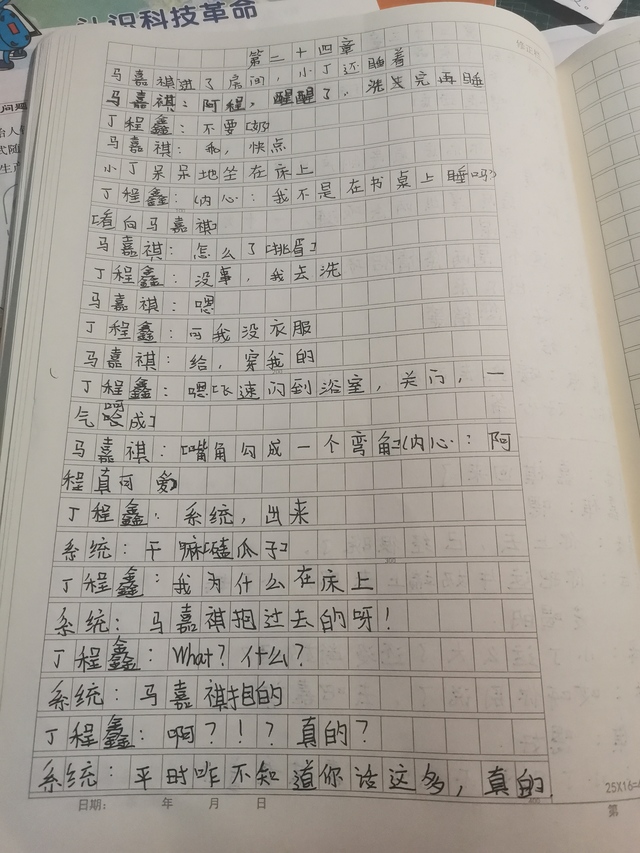 认识科技革命
第二十四章
马嘉祺进了房间，小丁还睡着
马嘉祺：阿程，醒醒了．洗澡完再睡
丁程鑫：不要[奶]
马嘉祺：乖，快点
小丁呆呆地坐在床上
丁程鑫：(内心：我不是在书桌上睡吗?)
[看向马嘉祺]
马嘉祺：怎么了[挑眉]
丁程鑫：没事，我去洗
马嘉祺：嗯
丁程鑫：可我没衣服
马嘉祺：给，穿我的
丁程鑫：嗯[飞速闪到浴室，关门，一
气呵成]
马嘉祺：[嘴角勾成一个弯角](内心：阿
程真可爱)
丁程鑫：系统，出来
系统：干嘛[磕瓜子]
丁程鑫：我为什么在床上
系统：马嘉祺抱过去的呀！
丁程鑫：What？什么？
系统：马嘉祺抱的
丁程鑫：啊？！？真的？
系统：平时咋不知道你话这多，真的．
日期： 年 月 日
25X16=4
第